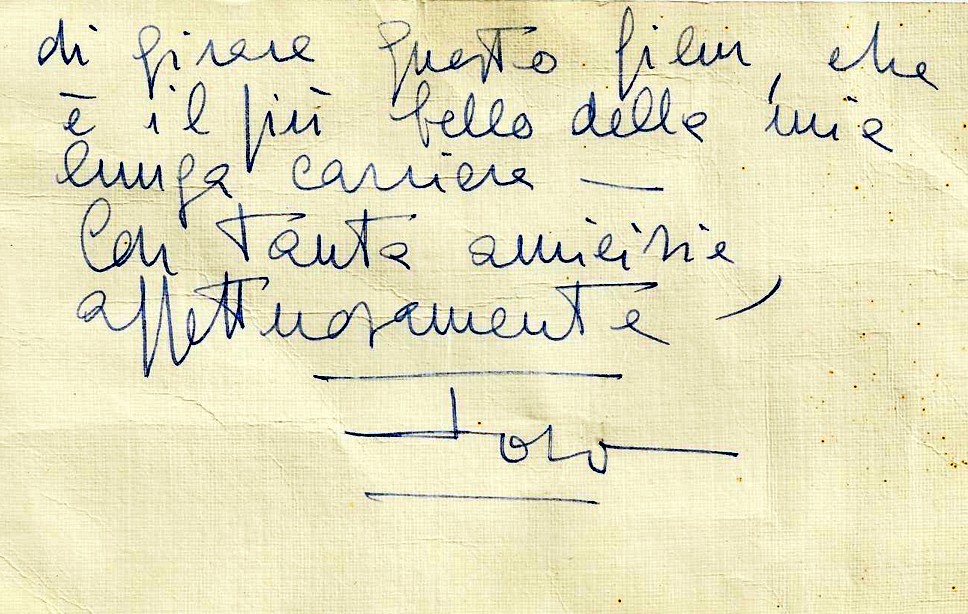 di girare questo film, che
è il più bello della mia
lunga carriera —
Con tanta amicizia,
affettuosamente
Totò